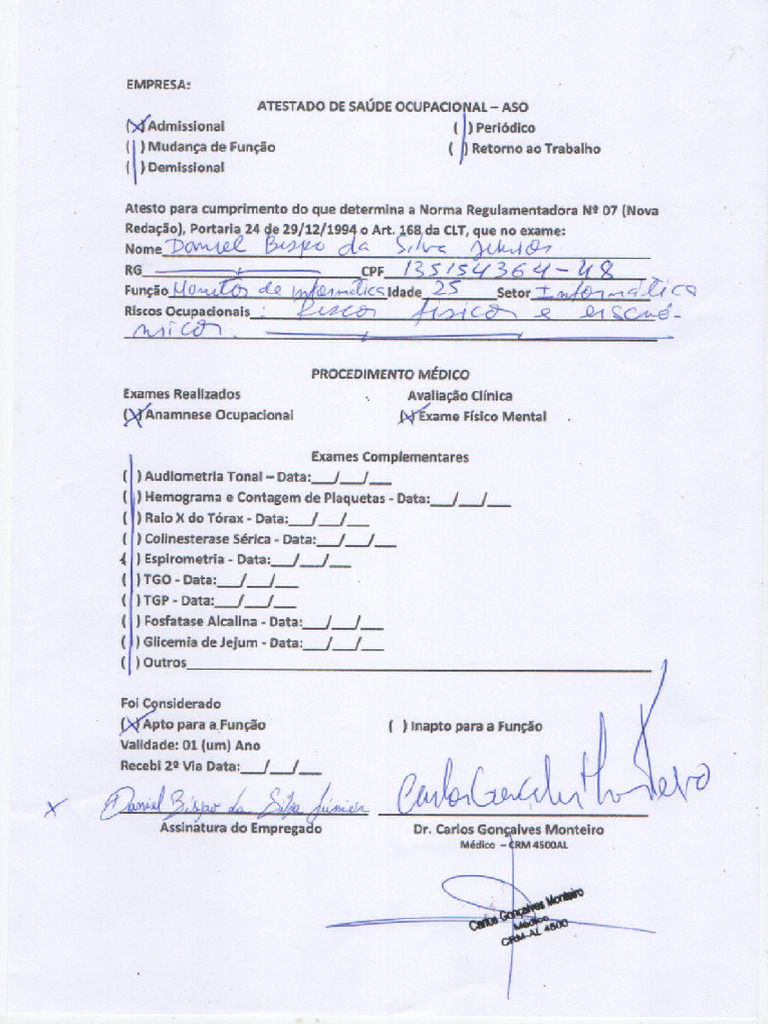 EMPRESA:
ATESTADO DE SAÚDE OCUPACIONAL – ASO
(X) Admissional ( ) Periódico
( ) Mudança de Função ( ) Retorno ao Trabalho
( ) Demissional
Atesto para cumprimento do que determina a Norma Regulamentadora Nº 07 (Nova
Redação), Portaria 24 de 29/12/1994 o Art. 168 da CLT, que no exame:
Nome Daniel Bispo da Silva Júnior
RG CPF 135154364-48
Função Monitor de informática Idade 25 Setor Informática
Riscos Ocupacionais : Risco físico e ergonô-
mico.
PROCEDIMENTO MÉDICO
Exames Realizados Avaliação Clínica
(X) Anamnese Ocupacional (X) Exame Físico Mental
Exames Complementares
( ) Audiometria Tonal – Data:___/___/___
( ) Hemograma e Contagem de Plaquetas - Data:___/___/___
( ) Raio X do Tórax - Data:___/___/___
( ) Colinesterase Sérica - Data:___/___/___
( ) Espirometria - Data:___/___/___
( ) TGO - Data:___/___/___
( ) TGP - Data:___/___/___
( ) Fosfatase Alcalina - Data:___/___/___
( ) Glicemia de Jejum - Data:___/___/___
( ) Outros
Foi Considerado
(X) Apto para a Função ( ) Inapto para a Função
Validade: 01 (um) Ano
Recebi 2ª Via Data:___/___/___
x Daniel Bispo da Silva Júnior Carlos Gonçalves Monteiro
Assinatura do Empregado Dr. Carlos Gonçalves Monteiro
Médico – CRM 4500AL
Carlos Gonçalves Monteiro
Médico
CRM-AL 4500